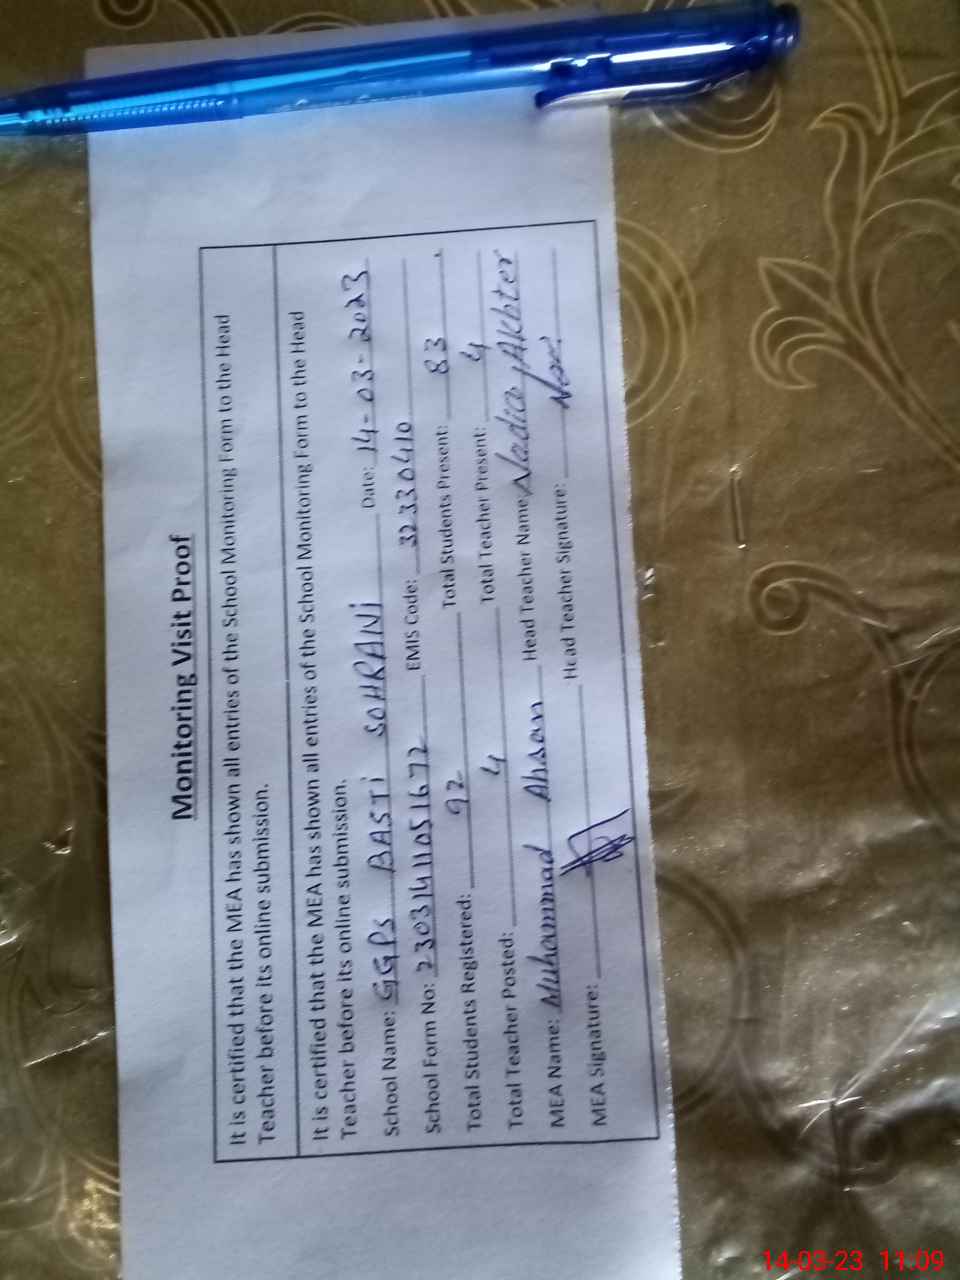 Monitoring Visit Proof
It is certified that the MEA has shown all entries of the School Monitoring Form to the Head
Teacher before its online submission.
It is certified that the MEA has shown all entries of the School Monitoring Form to the Head
Teacher before its online submission.
School Name: GGPS BASTI SOHRANi Date: 14-03-2023
School Form No: 23031411051672 EMIS Code: 32330410
Total Students Registered: 92 Total Students Present: 83
Total Teacher Posted: 4 Total Teacher Present: 4
MEA Name: Muhammad Ahsan Head Teacher Name: Nadia Akhter
MEA Signature: Head Teacher Signature:
14-03-23 11:09